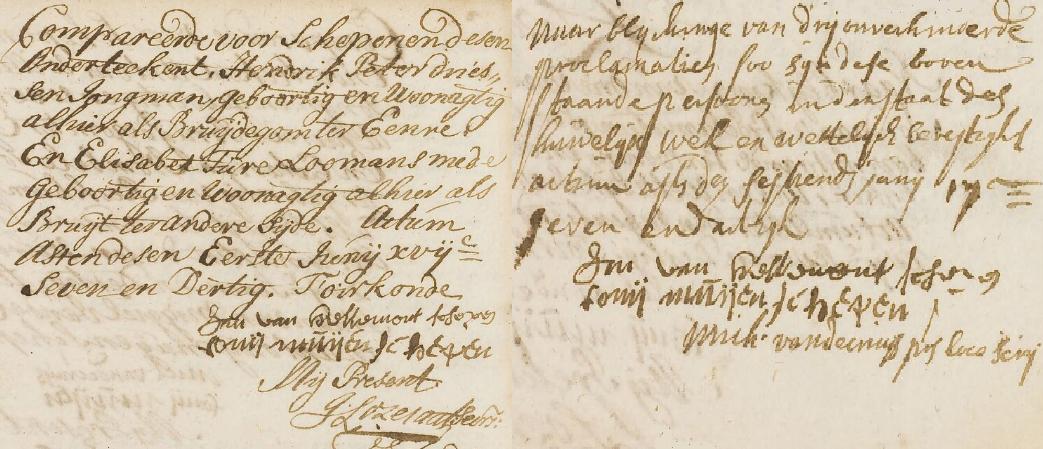 Compareerde voor Schepenen desen
Onderteekent, Hendrik Peter dries,,
sen Jongman, geboortig en Woonagtig
alhier als Bruijdegom ter Eenre
En Elisabet Ture Loomans mede
Geboortig en woonagtig alhier als
Bruijt ter andere Zijde. Actum
Asten desen Eerste Junij xvij c
Seven en Dertig. Toirkonde
Jan van hellemont schepen
tonij muijen schepen
Mij Present
Naar blijckinge van drij onverhinderde
proclamatien soo sijn dese boven
staande persoonen in den staat des
huwelijx wel en wettelijck bevestight
actum asten den sestiende junij 17 c
seven en dartigh
Jan van hellemont schepen
tonij muijen schepen
loco